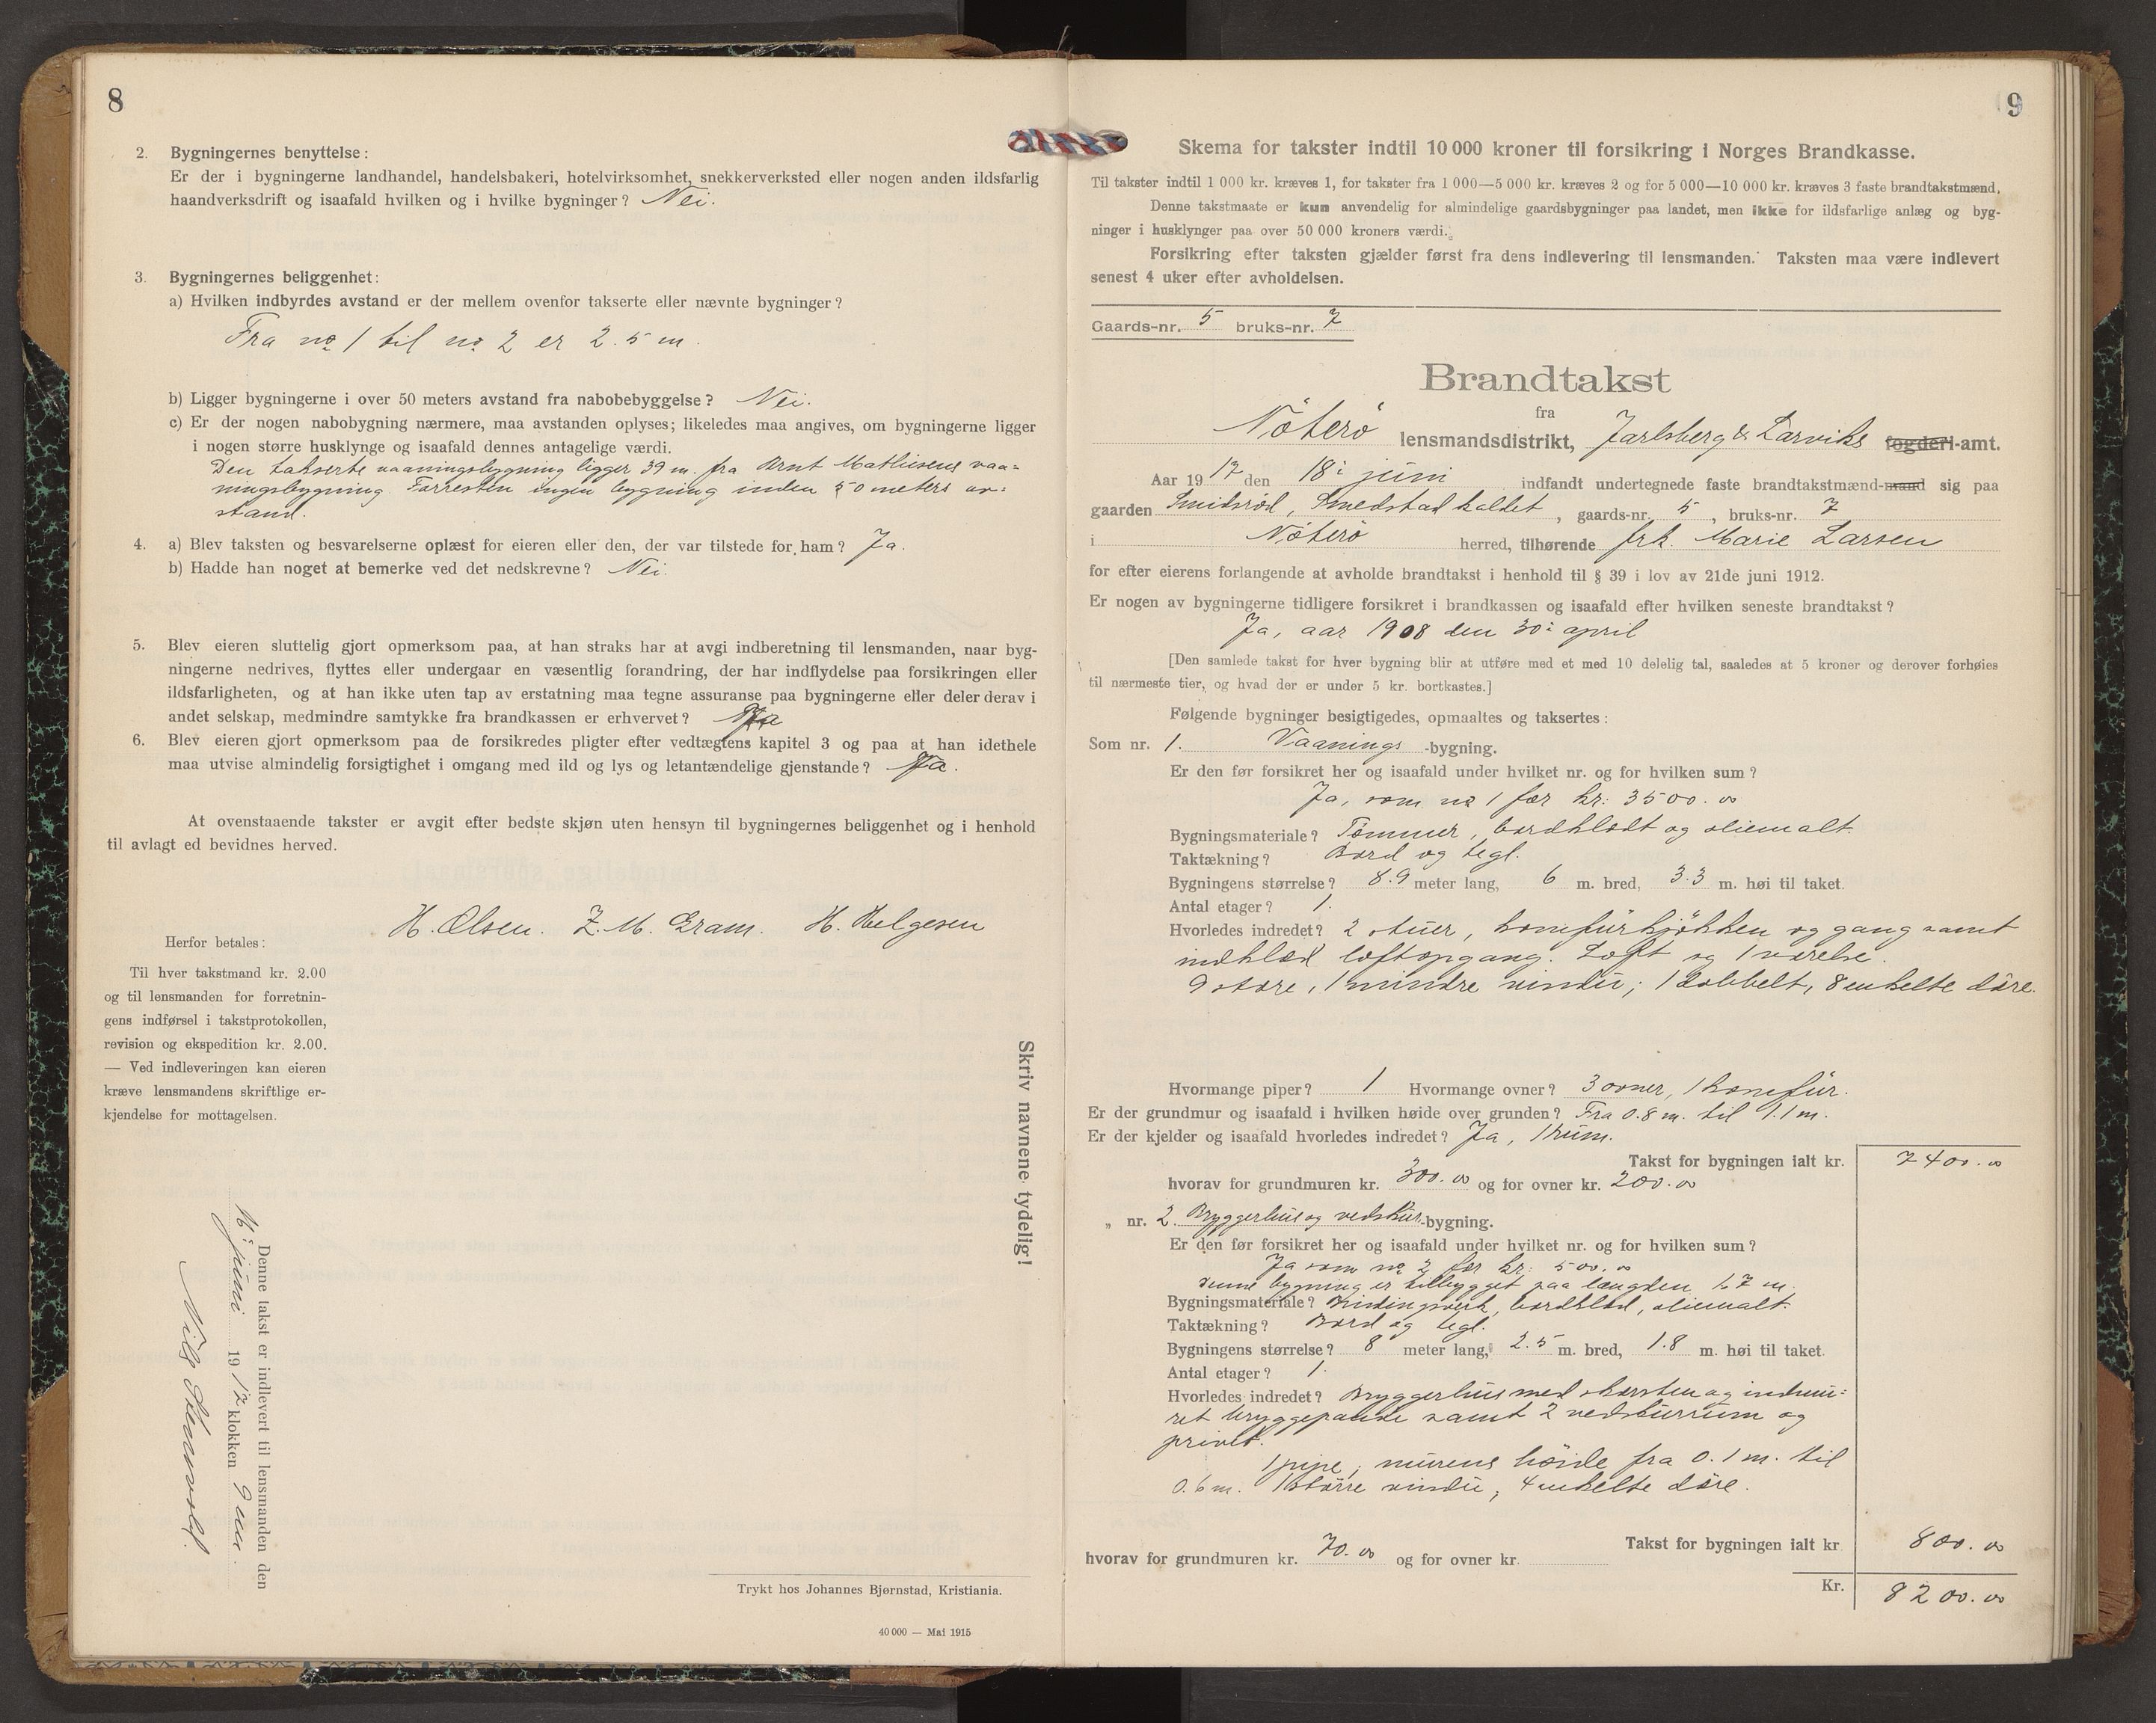 8
2. Bygningernes benyttelse:
Er der i bygningerne landhandel, handelsbakeri, hotelvirksomhet, snekkerverksted eller nogen anden ildsfarlig
haandverksdrift og isaafald hvilken og i hvilke bygninger? Nei.
3. Bygningernes beliggenhet:
a) Hvilken indbyrdes avstand er der mellem ovenfor takserte eller nævnte bygninger?
Fra no 1 til no 2 er 2.5 m.
b) Ligger bygningerne i over 50 meters avstand fra nabobebyggelse? Nei.
c) Er der nogen nabobygning nærmere, maa avstanden oplyses; likeledes maa angives, om bygningerne ligger
i nogen større husklynge og isaafald dennes antagelige værdi.
Den takserte vaaningsbygning ligger 39 m. fra Arnt Mathisens vaa=
ningsbygning. Forresten ingen bygning inden 50 meters av=
stand.
4. a) Blev taksten og besvarelserne oplæst for eieren eller den, der var tilstede for ham? Ja.
b) Hadde han noget at bemerke ved det nedskrevne? Nei.
5. Blev eieren sluttelig gjort opmerksom paa, at han straks har at avgi indberetning til lensmanden, naar byg-
ningerne nedrives, flyttes eller undergaar en væsentlig forandring, der har indflydelse paa forsikringen eller
ildsfarligheten, og at han ikke uten tap av erstatning maa tegne assuranse paa bygningerne eller deler derav i
andet selskap, medmindre samtykke fra brandkassen er erhvervet? Ja
6. Blev eieren gjort opmerksom paa de forsikredes pligter efter vedtægtens kapitel 3 og paa at han idethele
maa utvise almindelig forsigtighet i omgang med ild og lys og letantændelige gjenstande? Ja.
At ovenstaaende takster er avgit efter bedste skjøn uten hensyn til bygningernes beliggenhet og i henhold
til avlagt ed bevidnes herved.
H. Olsen. Z. M. Gram. H. Helgesen
Herfor betales:
Til hver takstmand kr. 2.00
og til lensmanden for forretnin-
gens indførsel i takstprotokollen,
revision og ekspedition kr. 2.00.
— Ved indleveringen kan eieren
kræve lensmandens skriftlige er-
kjendelse for mottagelsen.
Skriv navnene tydelig!
Denne takst er indlevert til lensmanden den
juni 1917 klokken 9
Nils
Trykt hos Johannes Bjørnstad, Kristiania.
40 000 — Mai 1915
9
Skema for takster indtil 10 000 kroner til forsikring i Norges Brandkasse.
Til takster indtil 1 000 kr. kræves 1, for takster fra 1 000—5 000 kr. kræves 2 og for 5 000—10 000 kr. kræves 3 faste brandtakstmænd,
Denne takstmaate er kun anvendelig for almindelige gaardsbygninger paa landet, men ikke for ildsfarlige anlæg og byg-
ninger i husklynger paa over 50 000 kroners værdi.
Forsikring efter taksten gjælder først fra dens indlevering til lensmanden. Taksten maa være indlevert
senest 4 uker efter avholdelsen.
Gaards-nr. 5 bruks-nr. 7
Brandtakst
fra
Nöterö lensmandsdistrikt, Jarlsberg & Larviks fogderi-amt.
Aar 1917 den 18i juni indfandt undertegnede faste brandtakstmænd-mand sig paa
gaarden Smidsröd, Smedstad kaldet, gaards-nr. 5, bruks-nr. 7
i Nöterö herred, tilhørende frk. Marie Larsen
for efter eierens forlangende at avholde brandtakst i henhold til § 39 i lov av 21de juni 1912.
Er nogen av bygningerne tidligere forsikret i brandkassen og isaafald efter hvilken seneste brandtakst?
Ja, aar 1908 den 30i april
[Den samlede takst for hver bygning blir at utføre med et med 10 delelig tal, saaledes at 5 kroner og derover forhøies
til nærmeste tier, og hvad der er under 5 kr. bortkastes.]
Følgende bygninger besigtigedes, opmaaltes og taksertes:
Som nr. 1. Vaanings-bygning.
Er den før forsikret her og isaafald under hvilket nr. og for hvilken sum?
Ja, som no 1 for kr: 3500.00
Bygningsmateriale? Tömmer, bordklædt og oliemalt.
Taktækning? Bord og tegl.
Bygningens størrelse? 8.9 meter lang, 6 m. bred, 3.3 m. høi til taket.
Antal etager? 1.
Hvorledes indredet? 2 stuer, komfürkjökken og gang samt
indklæd loftsopgang. Loft og 1 værelse.
9 store, 1 mindre vindu; 1 dobbelt, 8 enkelte döre.
Hvormange piper? 1 Hvormange ovner? 3 ovner, 1 komfür.
Er der grundmur og isaafald i hvilken høide over grunden? Fra 0.8 m. til 1.1 m.
Er der kjelder og isaafald hvorledes indredet? Ja, 1 rum.
Takst for bygningen ialt kr. 7400.00
hvorav for grundmuren kr. 300.00 og for ovner kr. 200.00
„ nr. 2. Bryggerhus og vedskur-bygning.
Er den før forsikret her og isaafald under hvilket nr. og for hvilken sum?
Ja som no 2 for kr: 500.00
Denne bygning er tilbygget paa længden 1.7 m.
Bygningsmateriale? Bindingsverk, bordklæd, oliemalt.
Taktækning? Bord og tegl.
Bygningens størrelse? 8 meter lang, 2.5 m. bred, 1.8 m. høi til taket.
Antal etager? 1.
Hvorledes indredet? Bryggerhus med skorsten og indmu=
ret bryggepande samt 2 vedskurrum og
privet.
1 pipe, murens höide fra 0.1 m. til
0.6 m. 1 större vindu, 4 enkelte döre.
Takst for bygningen ialt kr 800.00
hvorav for grundmuren kr. 70.00 og for ovner kr.
Kr. 8200.00